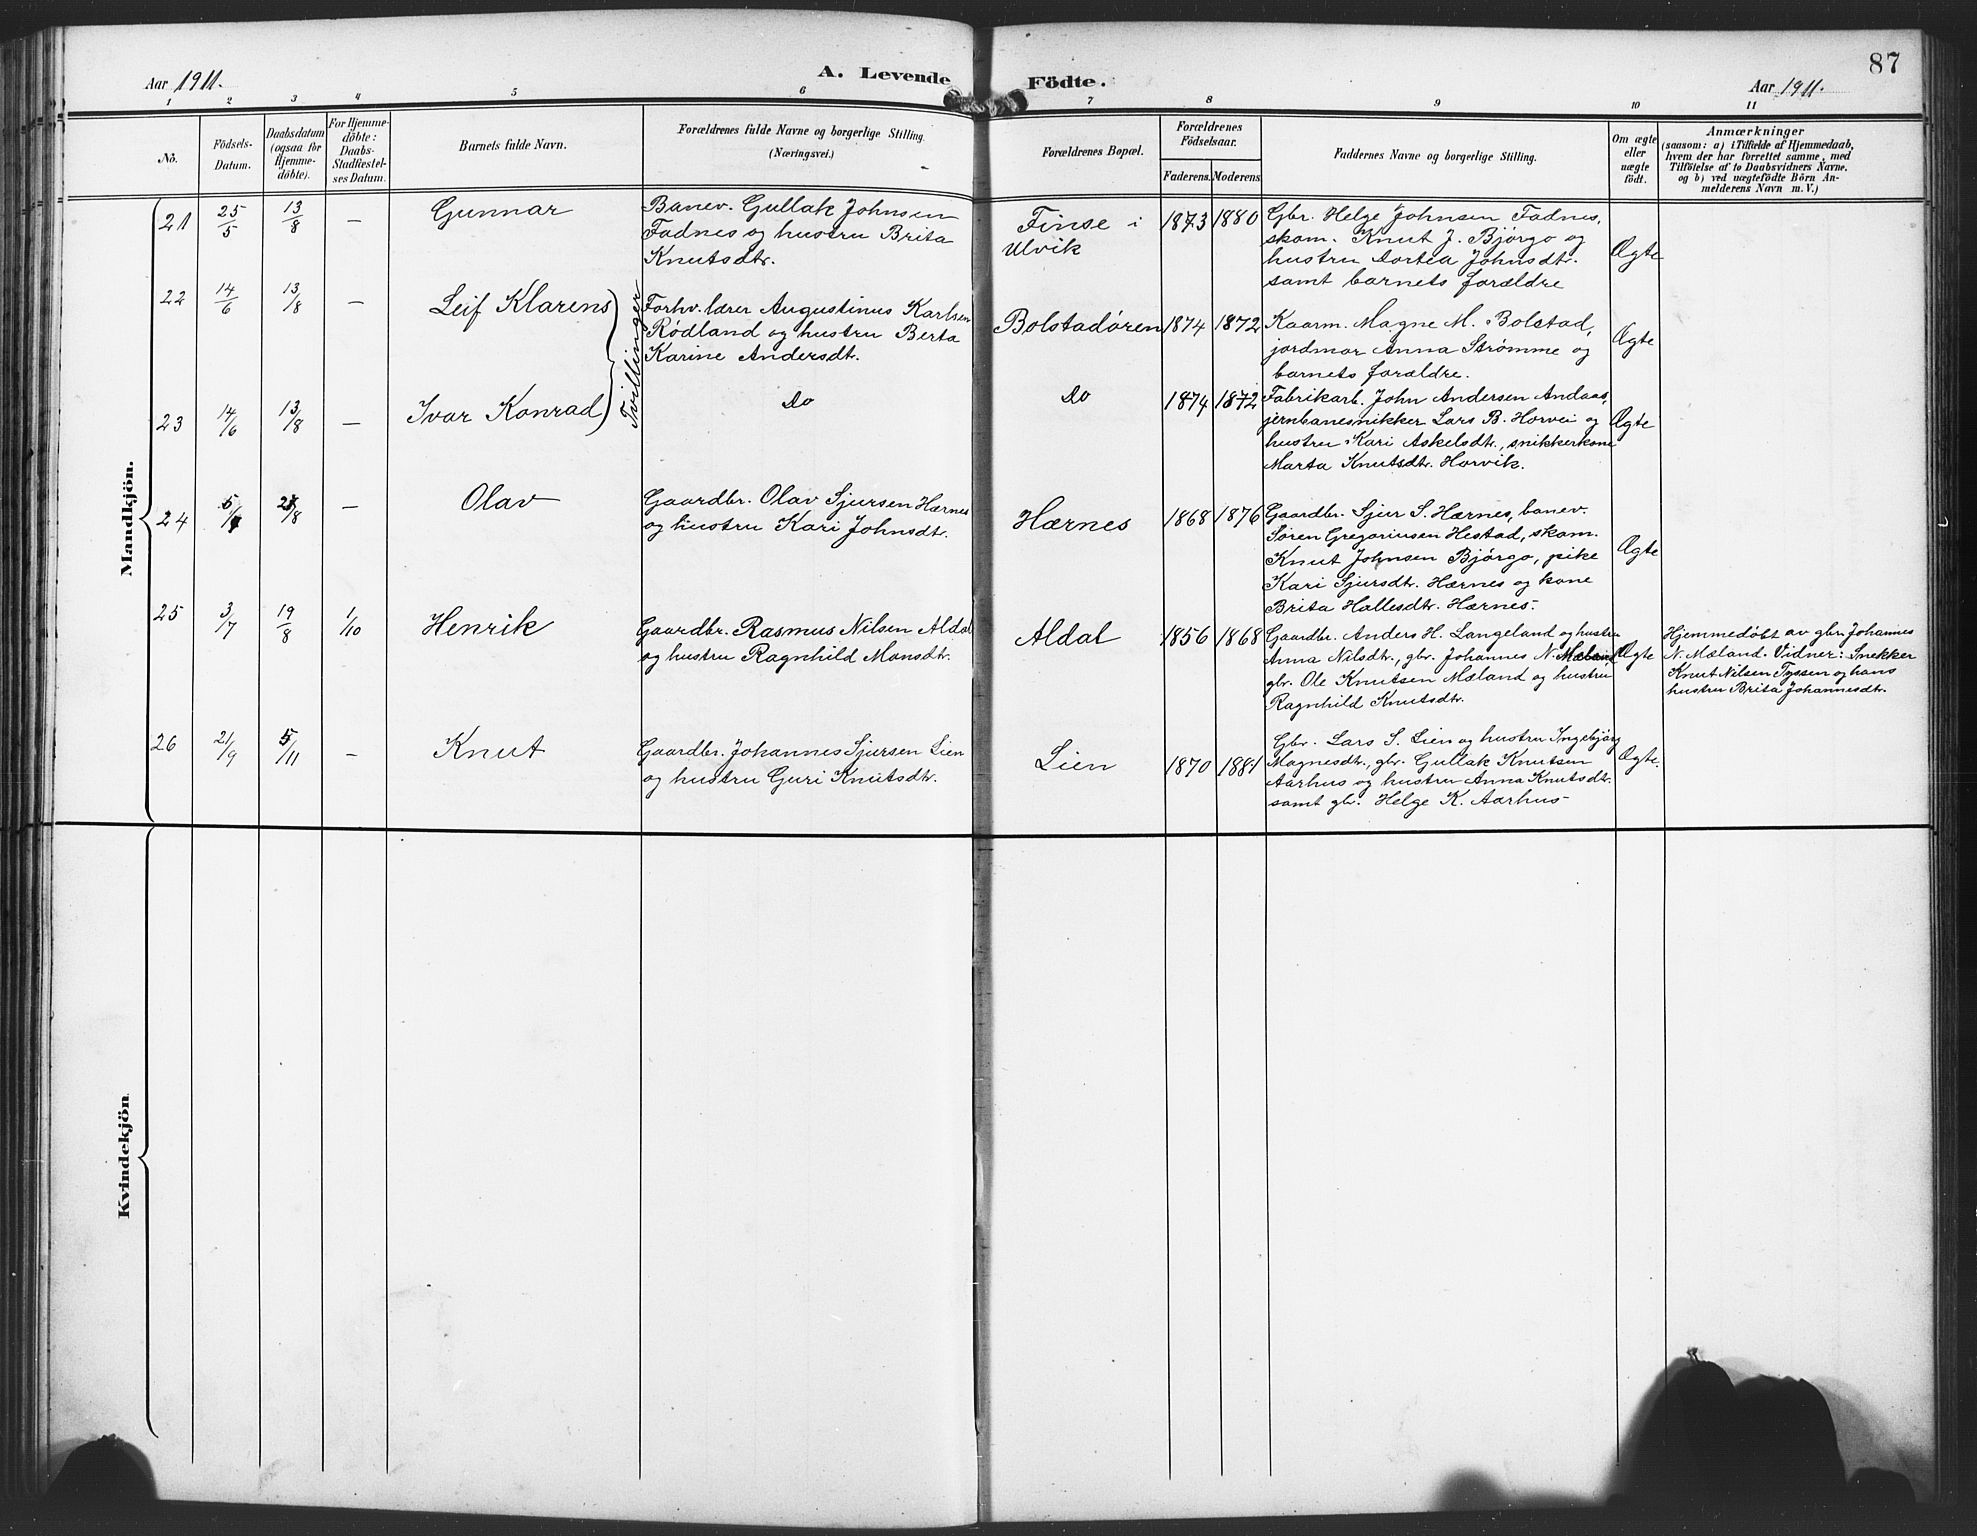 87
Aar 1911.
A. Levende Födte.
Aar 1911.
1 2 3 4 5 6 7 8 9 10 11
No.
Födsels-
Datum.
Daabsdatum
(ogsaa for
Hjemme-
döbte).
For Hjemme-
döbte:
Daabs-
Stadfæstel-
ses Datum.
Barnets fulde Navn.
Forældrenes fulde Navne og borgerlige Stilling.
(Næringsvei.)
Forældrenes Bopæl.
Forældrenes
Födselsaar.
Faderens. Moderens.
Faddernes Navne og borgerlige Stilling.
Om ægte
eller
uægte
födt.
Anmærkninger
(saasom: a) i Tilfælde af Hjemmedaab,
hvem der har forrettet samme, med
Tilföielse af to Daabsvidners Navne,
og b) ved uægtefödte Börn An-
melderens Navn m. V.)
Mandkjön.
21 25/5 13/8 —
Gunnar
Banev. Gullak Johnsen
Fadnes og hustru Brita
Knutsdtr.
Finse i
Ulvik
1873 1880
Gbr. Helge Johnsen Fadnes,
skom. Knut J. Bjørgo og
hustru Dortea Johnsdtr.
samt barnets forældre
Ægte
22 14/6 13/8 —
Leif Klarens
Tvillinger
Forhv. lærer Augustinus Karlsen
Rødland og hustru Berta
Karine Andersdt.
Bolstadøren
1874 1872
Kaarm. Magne M. Bolstad,
jordmor Anna Strømme og
barnets forældre.
Ægte
23 14/6 13/8 —
Ivar Konrad
Do
Do
1874 1872
Fabrikarb. John Andersen Andaas,
jernbanesnikker Lars B. Horvei og
hustru Kari Askelsdtr., snikkerkone
Marta Knutsdtr. Horvik.
Ægte
24 5/7 /8 —
Olav
Gaardbr. Olav Sjursen Hærnes
og hustru Kari Johnsdtr.
Hærnes
1868 1876
Gaardbr. Sjur S. Hærnes, banev.
Søren Gregoriusen Hestad, skom.
Knut Johnsen Bjørgo, pike
Kari Sjursdtr. Hærnes og kone
Brita Hallesdtr. Hærnes.
Ægte
25 3/7 19/8 1/10
Henrik
Gaardbr. Rasmus Nilsen Aldal
og hustru Ragnhild Monsdtr.
Aldal
1856 1868
Gaardbr. Anders H. Langeland og hustru
Anna Nilsdtr., gbr. Johannes N. Mæland
gbr. Ole Knutsen Mæland og hustru
Ragnhild Knutsdtr.
Ægte
Hjemmedøbt av gbr. Johannes
N. Mæland. Vidner: Snekker
Knut Nilsen Tyssen og hans
hustru Brita Johannesdt.
26 21/9 5/11 —
Knut
Gaardbr. Johannes Sjursen Lien
og hustru Guri Knutsdtr.
Lien
1870 1881
Gbr. Lars S. Lien og hustru Ingebjørg
Magnesdt., gbr. Gullak Knutsen
Aarhus og hustru Anna Knutsdt.
samt gbr. Helge K. Aarhus
Ægte.
Kvindekjön